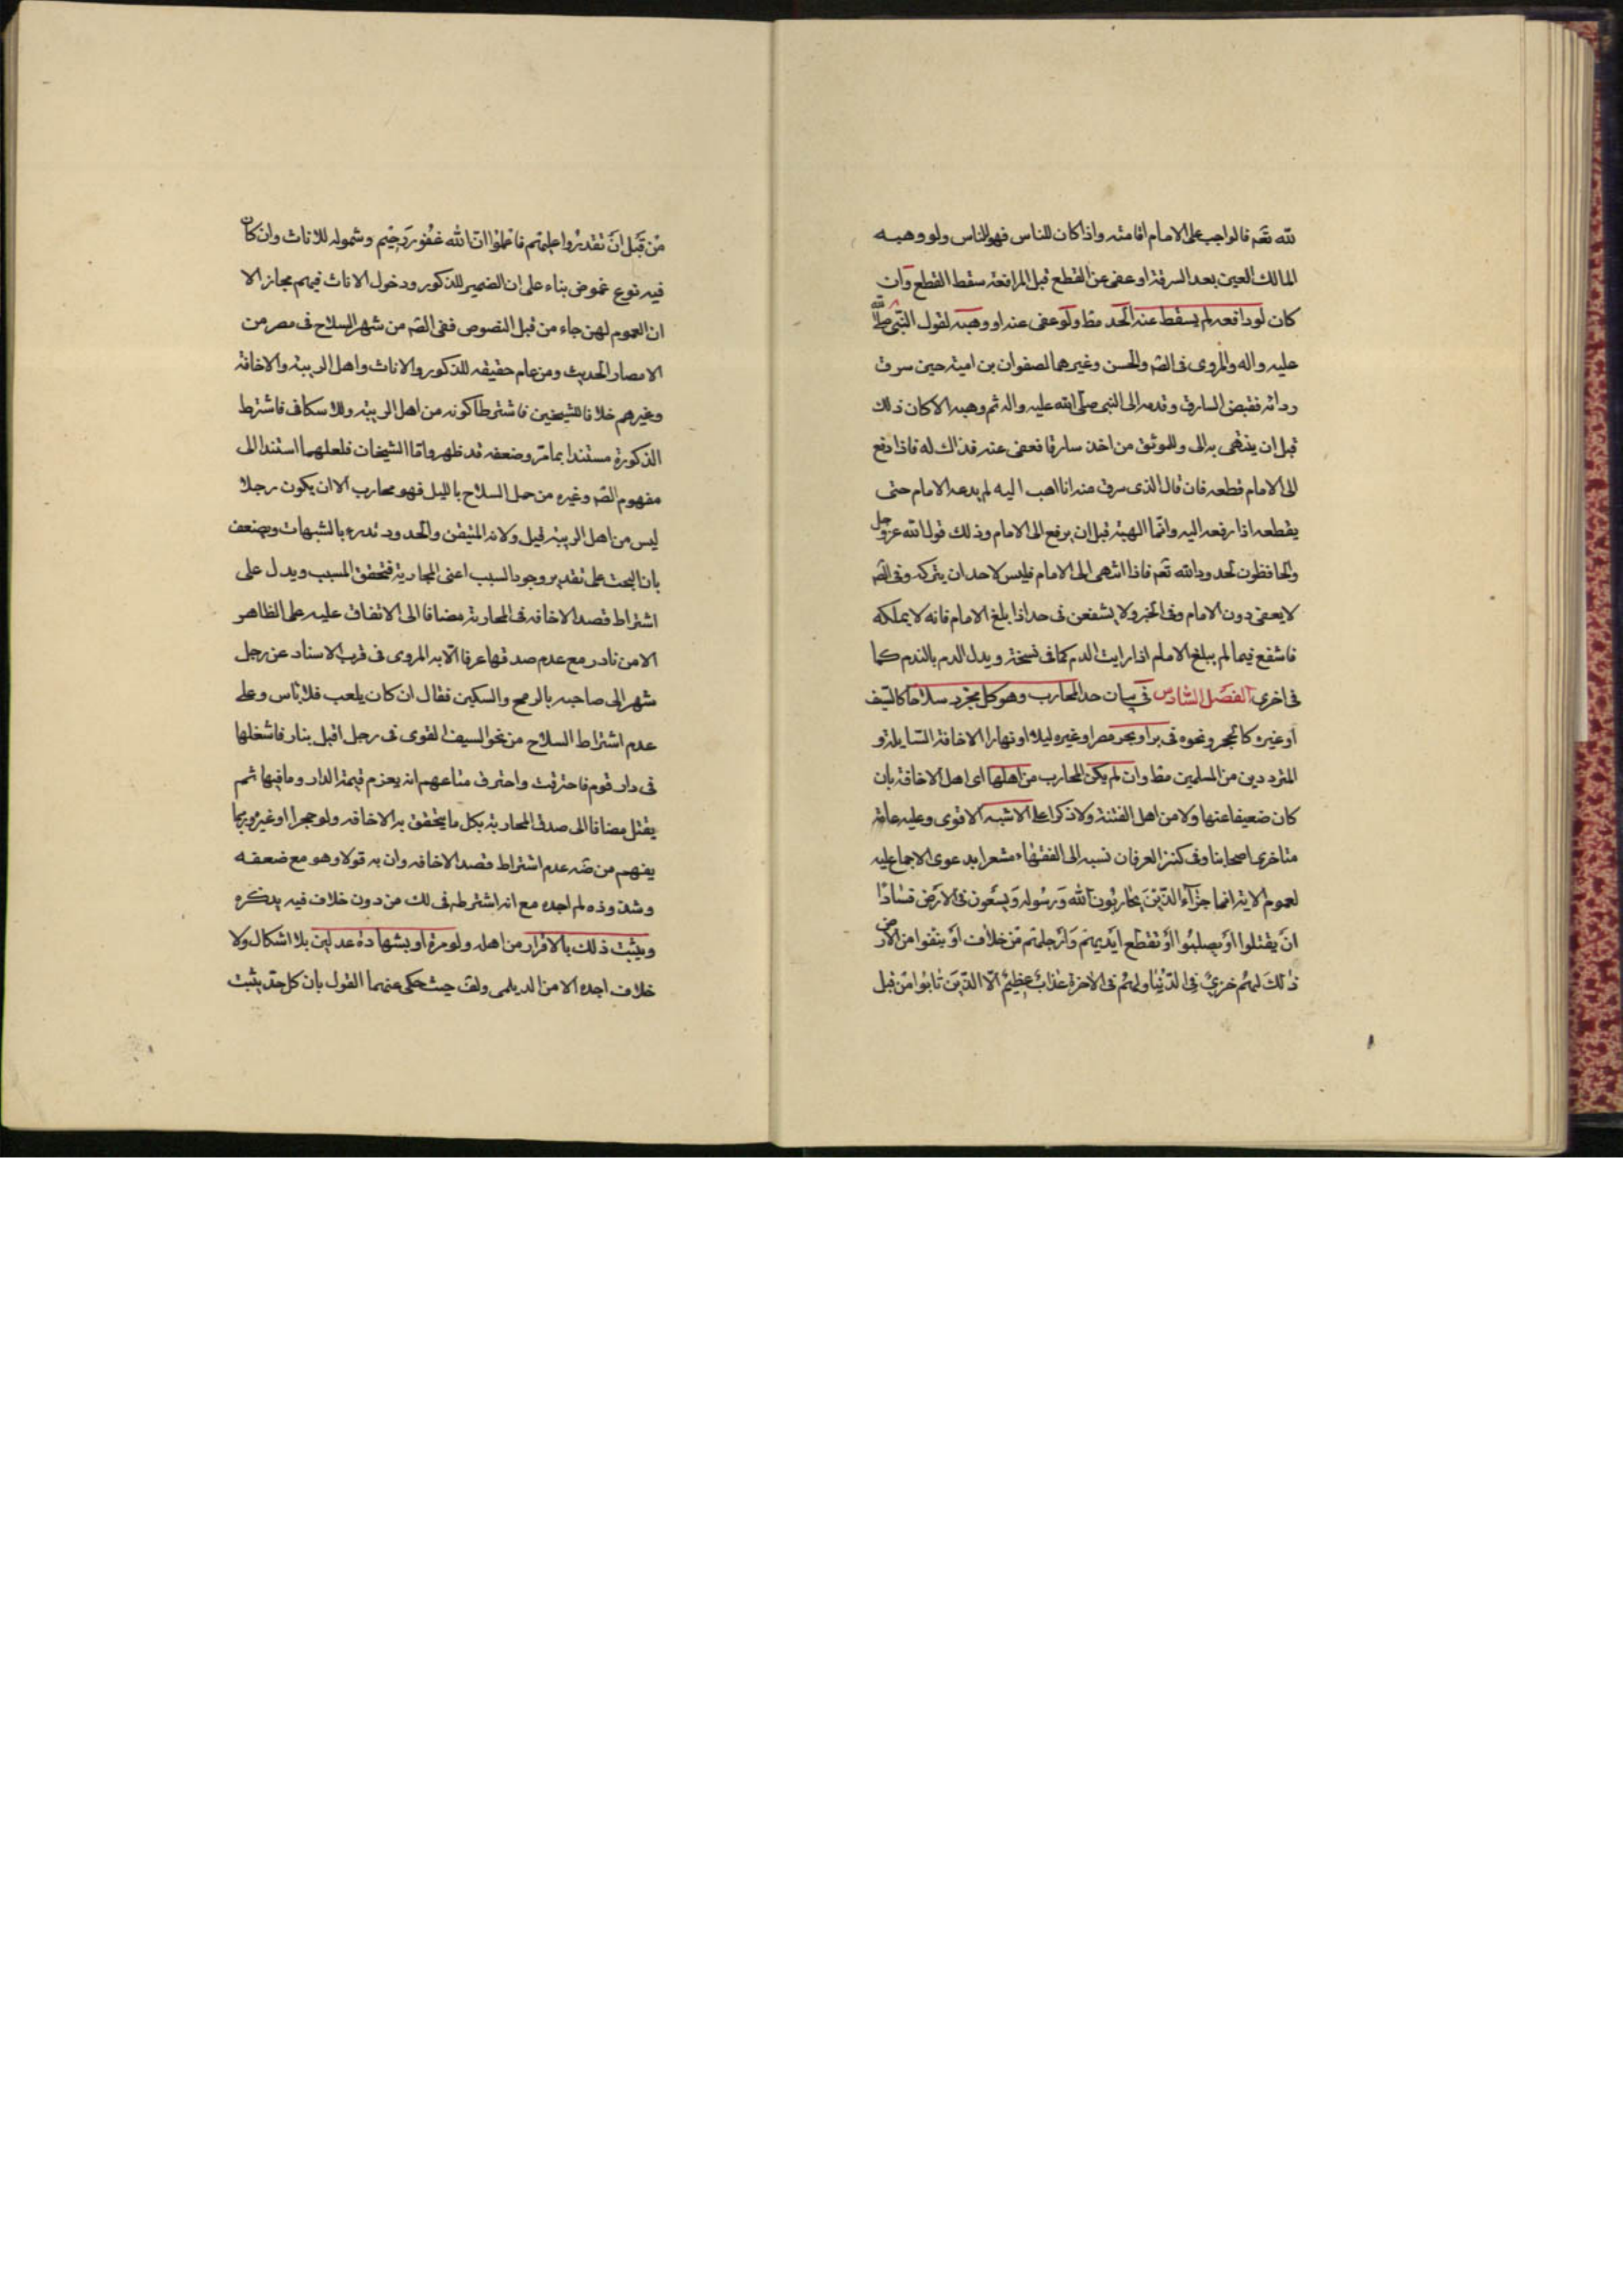 لله تعم فالواجب على الامام اقامته واذا كان للناس فهو للناس ولو وهبه
المالك العين بعد السرقة او عفى عن القطع قبل المرافعة سقط القطع وان
كان لو رافعه لم يسقط عنه الحد مط ولو عفى عنه او وهبه لقول النبى صلى الله
عليه واله والمروى فى الصّ والحسن وغيرهما لصفوان بن امية حين سرق
ردائه فقبض السارق وقدمه الى النبى صلى الله عليه واله ثم وهبه الا كان ذلك
قبل ان ينتهى به الى وللموثق من اخذ سارقا فعفى عنه فذاك له فاذا رفع
الى الامام قطعه فان قال الذى سرق منه انا اهب اليه لم يدعه الامام حتى
يقطعه اذا رفعه اليه وانما الهبة قبل ان يرفع الى الامام وذلك قول الله عز وجل
والحافظون لحدود الله تعم فاذا انتهى الى الامام فليس لاحد ان يتركه وفى الصّ
لا يعفى دون الامام وفى الخبر ولا يشفعن فى حد اذا بلغ الامام فانه لا يملكه
فاشفع فيما لم يبلغ الامام اذا رايت الدم كما فى نسخة ويدل الدم بالندم كما
فى اخرى الفصل السادس فى بيان حد المحارب وهو كل مجرد سلاحا كالسيف
او غيره كالحجر ونحوه فى بر او بحر مصر او غيره ليلا او نهارا لاخافة السابلة و
المترددين من المسلمين مط وان لم يكن المحارب من اهلها اى اهل الاخافة بان
كان ضعيفا عنها ولا من اهل الفتنة ولا ذكرا على الاشبه الاقوى وعليه عامة
متاخرى اصحابنا وفى كنز العرفان نسبه الى الفقهاء مشعرا بدعوى الاجماع عليه
لعموم الاية انما جزآء الذين يحاربون الله ورسوله ويسعون فى الارض فسادا
ان يقتلوا او يصلبوا او تقطع ايديهم وارجلهم من خلاف او ينفوا من الارض
ذلك لهم خزى فى الدنيا ولهم فى الاخرة عذاب عظيم الا الذين تابوا من قبل
من قبل ان تقدروا عليهم فاعلموا ان الله غفور رحيم وشموله للاناث وان كان
فيه نوع غموض بناء على ان الضمير للذكور ودخول الاناث فيهم مجاز الا
ان العموم لهن جاء من قبل النصوص ففى الصّ من شهر السلاح فى مصر من
الامصار الحديث ومن عام حقيقه للذكور والاناث واهل الريبة والاخافة
وغيرهم خلافا للشيخين فاشترطا كونه من اهل الريبة وللاسكافى فاشترط
الذكورة مستندا بما مرّ وضعفه قد ظهر واما الشيخان فلعلهما استندا الى
مفهوم الصّ وغيره من حمل السلاح بالليل فهو محارب الا ان يكون رجلا
ليس من اهل الريبة قيل ولانه المتيقن والحدود تدرء بالشبهات ويضعف
بان البحث على تقدير وجود السبب اعنى المحاربة فتحقق المسبب ويدل على
اشتراط قصد الاخافه فى المحاربة مضافا الى الاتفاق عليه على الظاهر
الا من نادر مع عدم صدقها عرفا الا به المروى فى قرب الاسناد عن رجل
شهر الى صاحبه بالرمح والسكين فقال ان كان يلعب فلا باس وعلى
عدم اشتراط السلاح من نحو السيف القوى فى رجل اقبل بنار فاشعلها
فى دار قوم فاحترقت واحترق متاعهم انه يغرم قيمة الدار وما فيها ثم
يقتل مضافا الى صدق المحاربة بكل ما يتحقق به الاخافه ولو حجرا او غيره وربما
يفهم من ضه عدم اشتراط قصد الاخافه وان به قولا وهو مع ضعفه
وشذوذه لم اجده مع انه اشترطه فى لك من دون خلاف فيه يذكره
ويثبت ذلك بالاقرار من اهله ولو مرة او بشهادة عدلين بلا اشكال ولا
خلاف اجده الا من الديلمى ولف حيث حكى عنهما القول بان كل حدّ يثبت